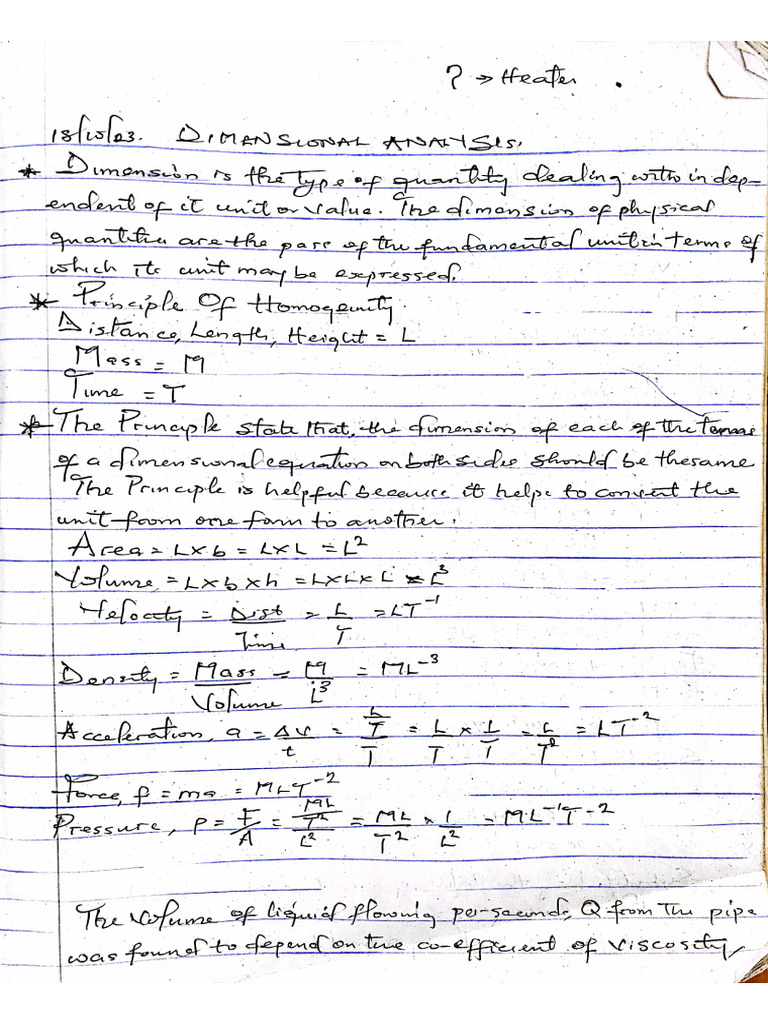 ? → Heater .
18/10/23. DIMENSIONAL ANALYSIS.
* Dimension is the type of quantity dealing with indep-
endent of it unit or value. The dimension of physical
quantities are the pass of the fundamental unit in terms of
which its unit may be expressed.
* Principle Of Homogenity
Distance, Length, Height = L
Mass = M
Time = T
* The Principle state that, the dimension of each of the terms
of a dimensional equation on both sides should be the same
The Principle is helpful because it helps to convert the
unit from one form to another.
Area = L x b = L x L = L²
Volume = L x b x h = L x L x L = L³
Velocity = Dist/Time = L/T = LT⁻¹
Density = Mass/Volume = M/L³ = ML⁻³
Acceleration, a = Δv/t = L/T/T = L/T x 1/T = L/T² = LT⁻²
Force, f = ma = MLT⁻²
Pressure, p = F/A = ML/T²/L² = ML/T² x 1/L² = ML⁻¹T⁻²
The Volume of liquid flowing per-seconds, Q from The pipe
was found to depend on the co-efficient of viscosity,